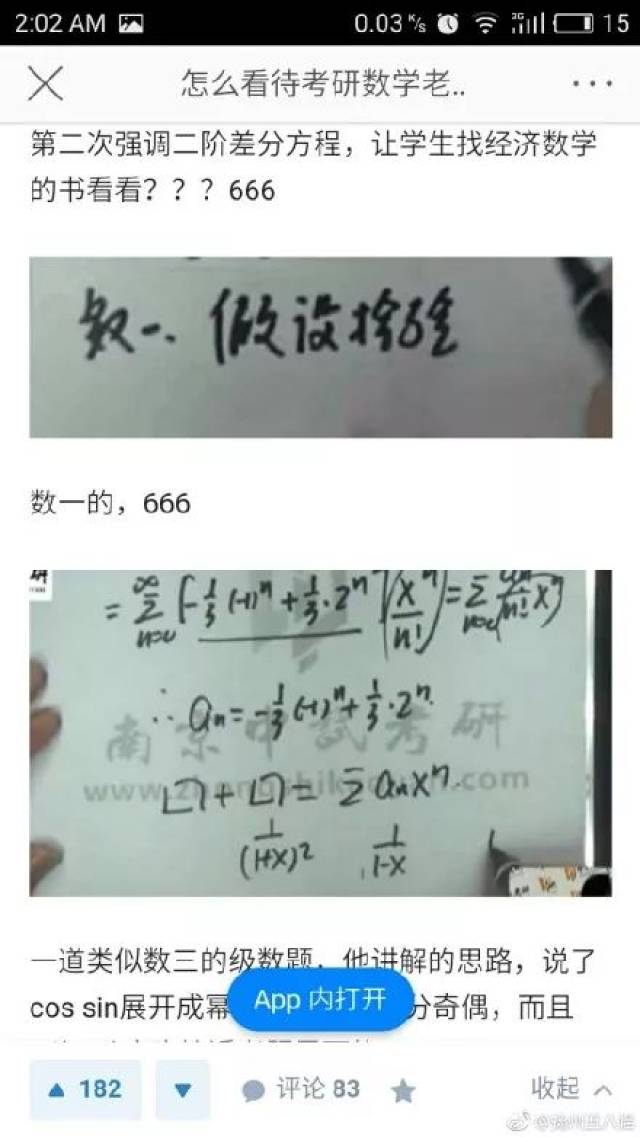 2:02 AM 0.03 K/s 3G 15
怎么看待考研数学老..
第二次强调二阶差分方程，让学生找经济数学
的书看看？？？666
数一. 假设检验
数一的，666
= ∞∑n=0 [-1/3 (-1)^n + 1/3 · 2^n] (x^n/n!) = ∑n=0 (an/n! x^n)
∴ an = -1/3 (-1)^n + 1/3 · 2^n.
南京中试考研
= ∑ an x^n.
1/(1+x)^2 1/1-x
一道类似数三的级数题，他讲解的思路，说了
cos sin展开成幂 App 内打开 分奇偶，而且
182 评论 83 收起
@扬州丘八俗